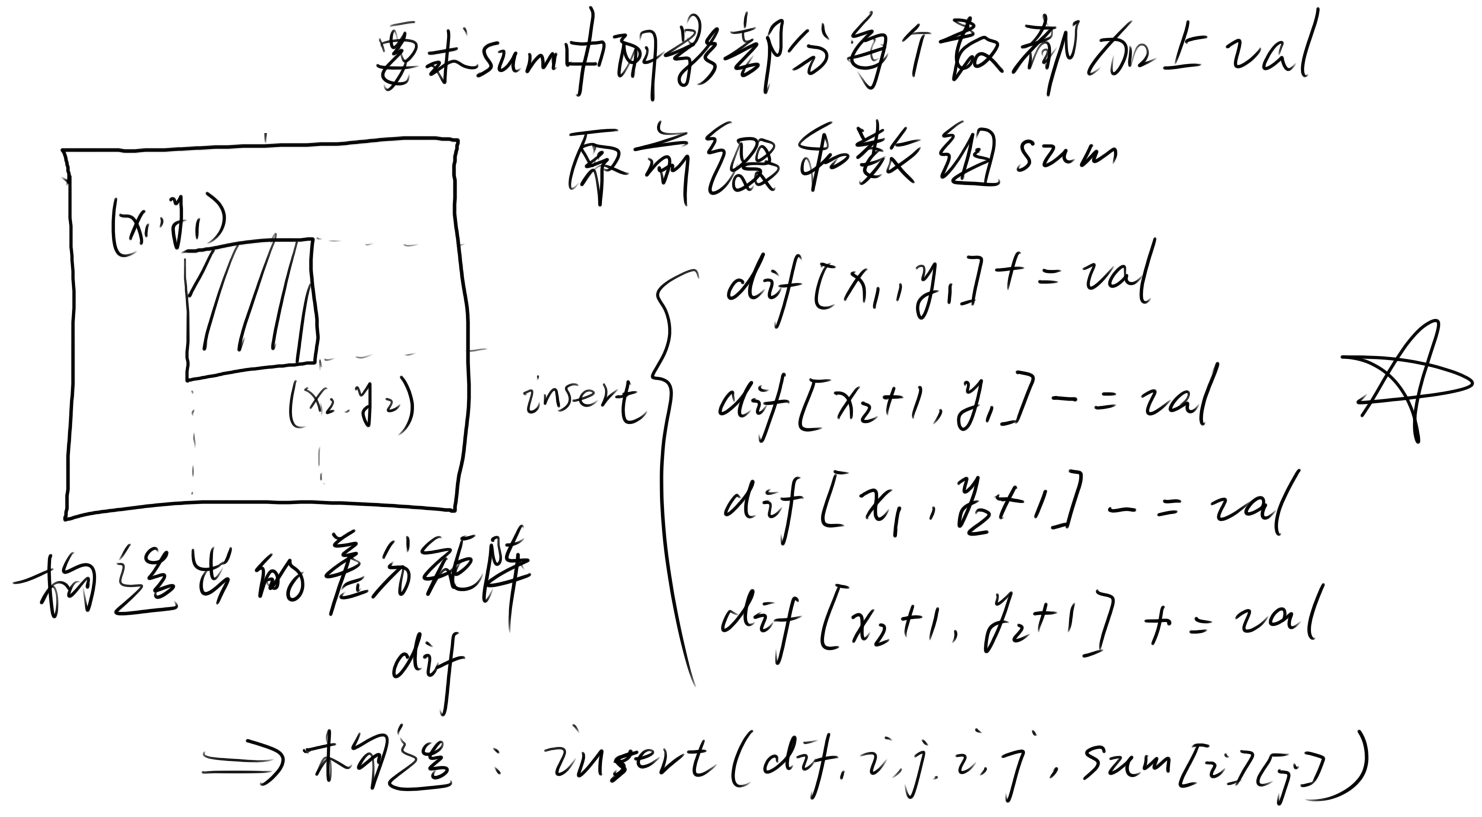 要求sum中阴影部分每个数都加上val
原前缀和数组sum
(x₁,y₁)
(x₂,y₂)
insert
dif[x₁,y₁]+=val
dif[x₂+1,y₁]-=val
dif[x₁,y₂+1]-=val
dif[x₂+1,y₂+1]+=val
构造出的差分矩阵
dif
⇒构造:insert(dif,i,j,i,j,sum[i][j])